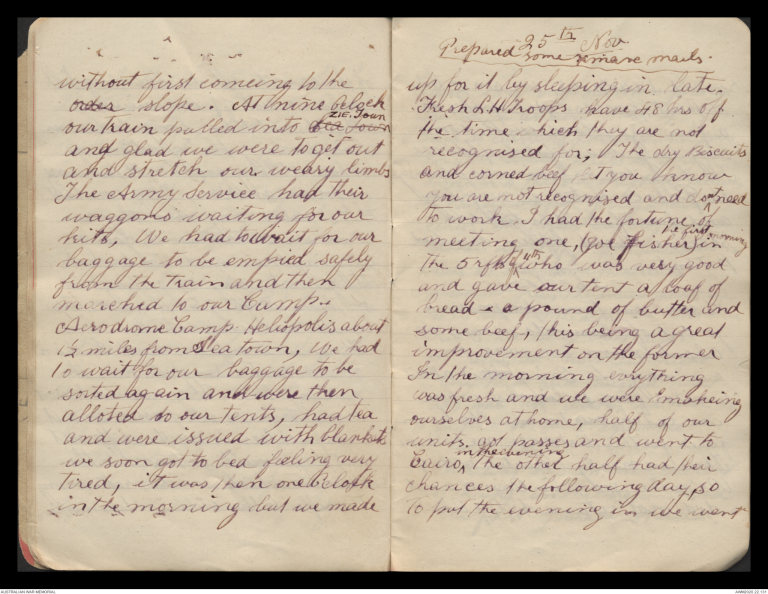 without first comeing to the
order slope. At nine oclock
our train pulled into Zie Town ZIE. Town
and glad we were to get out
and stretch our weary limbs
The Army Service had their
waggons waiting for our
kits, We had to wait for our
baggage to be empied safely
from the train and then
marched to our Camp.
Aerodrome Camp Heliopolis about
1½ miles from Zeatown, We had
to wait for our baggage to be
sorted again and were then
alloted to our tents, had tea
and were issued with blankets
we soon got to bed feeling very
tired, it was then one oclock
in the morning but we made
25th Nov
Prepared some more mails.
up for it by sleeping in late.
Fresh L.H Troops have 48 hrs off
the time which they are not
recognised for; The dry Biscuits
and corned beef let you know
you are not recognised and dont need
to work I had the fortune of
meeting one, (Joe Fisher) in the first morning
the 5 rfts 4th who was very good
and gave our tent a loaf of
bread & a pound of butter and
some beef, this being a great
improvement on the former
In the morning evrything
was fresh and we were makeing
ourselves at home, half of our
units. got passes and went to
Cairo, in the evening the other half had their
chances the following day, so
to put the evening in we went
AUSTRALIAN WAR MEMORIAL